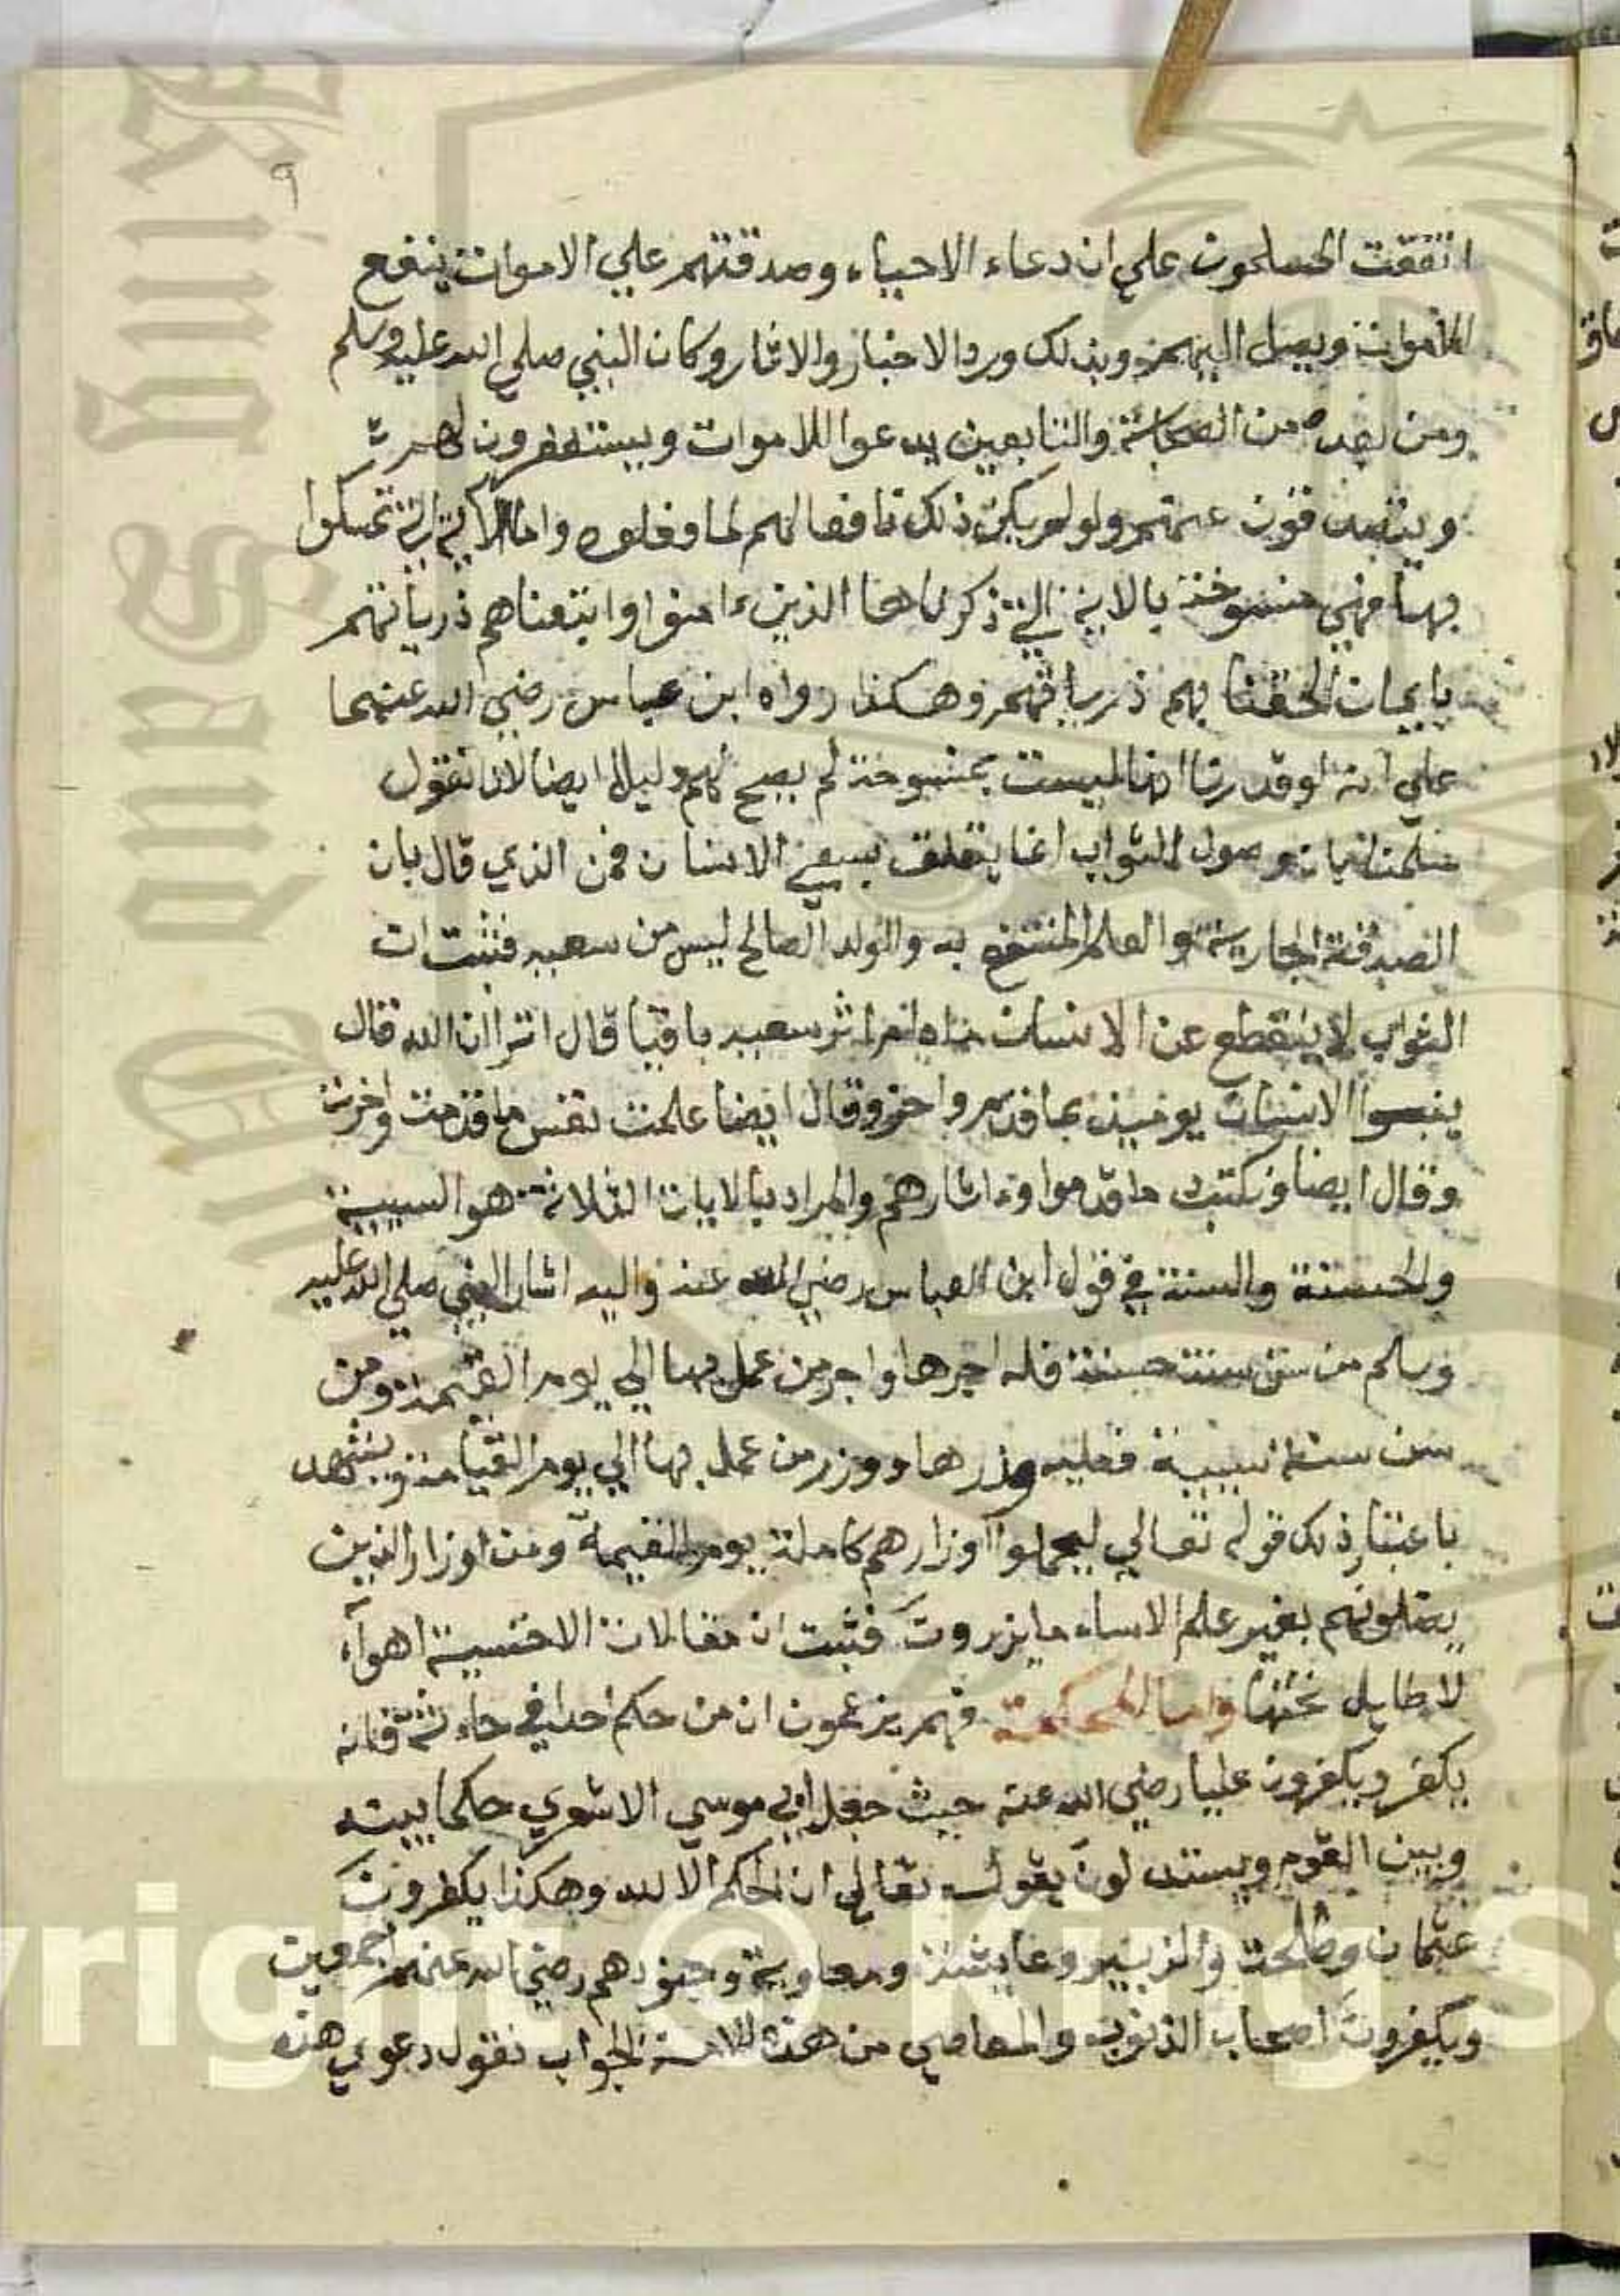 ٩
اتفقت المسلمون علي ان دعاء الاحياء وصدقتهم علي الاموات ينفع
الاموات ويصل اليهم وبذلك ورد الاخبار والاثار وكان النبي صلي الله عليه وسلم
ومن بعده من الصحابة والتابعين يدعوا للاموات ويستغفرون لهم
ويتصدقون عنهم ولو لم يكن ذلك نافعا لهم لما وفعلوه واما الآية التي تمسكوا
بها فهي منسوخة بالاية التي ذكرناها الذين ءامنوا واتبعناهم ذرياتهم
بايمان الحقنا بهم ذرياتهم وهكذا رواه ابن عباس رضي الله عنهما
علي انه لو قدرنا انها ليست بمنسوخة لم يصح لهم دليلا ايضا لانا نقول
سلمنا بان وصول الثواب انما يتعلق بسعي الانسان فمن الذي قال بان
الصدقة الجارية والعلم المنتفع به والولد الصالح ليس من سعيه فثبت ان
الثواب لا ينقطع عن الانسان مادام اثر سعيه باقيا قال اترا ان الله قال
ينبوا الانسان يوميذ بما قدم واخر وقال ايضا علمت نفس ما قدمت واخرت
وقال ايضا ونكتب ما قدموا وءاثارهم والمراد بالايات الثلاثة هو السيية
والحسنة والسنة في قول ابن العباس رضي الله عنه واليه اشار النبي صلي الله عليه
وسلم من سن سنة حسنة فله اجرها واجر من عمل بها الي يوم القيمة ومن
سن سنة سيية فعليه وزرها ووزر من عمل بها الي يوم القيامة ويشهد
باعتبار ذلك قوله تعالي ليحملوا اوزارهم كاملة يوم القيمة ومن اوزار الذين
يضلونهم بغير علم الاساء ما يزرون فثبت ان مقالات الاخنسية اهوآء
لا طايل تحتها واما المحكمة فهم يزعمون ان من حكم احدا في حادثة فانه
يكفر ويكفرون عليا رضي الله عنه حيث جعل ابي موسي الاشعري حكما بينه
وبين القوم ويستدلون بقوله تعالي ان الحكم الا لله وهكذا يكفرون
عثمان وطلحت والزبير وعايشة ومعاوية وجنودهم رضي الله عنهم اجمعين
ويكفرون اصحاب الذنوب والمعاصي من هذه الامة الجواب نقول دعوي هذه